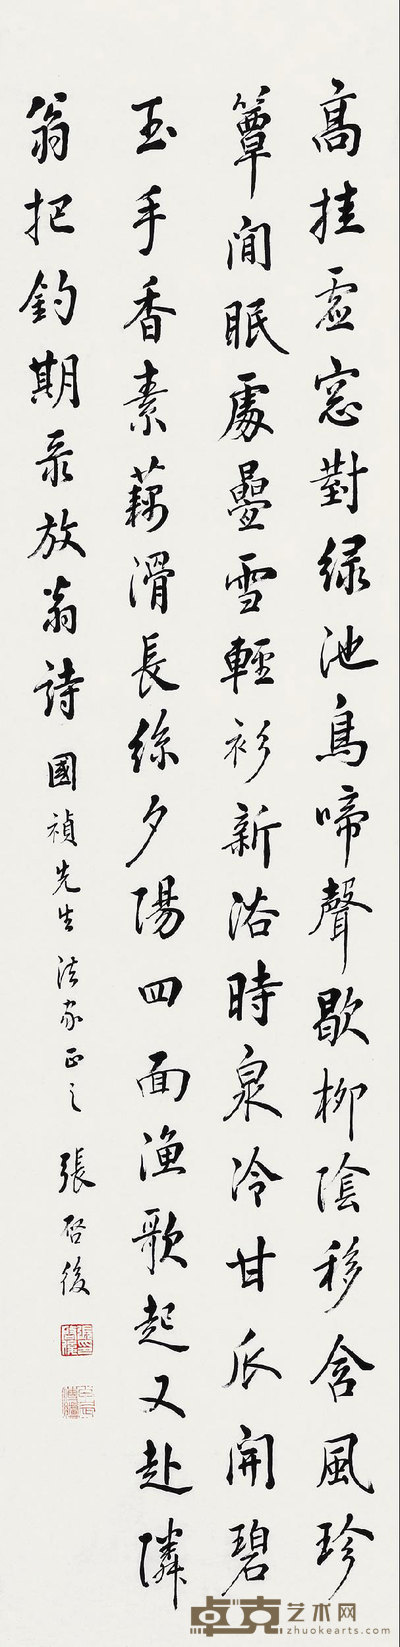 高挂虛窓對緑池鳥啼聲歇柳陰移含風珍
簟閒眠處疊雪輕衫新浴時泉冷甘瓜開碧
玉手香素藕滑長絲夕陽四面漁歌起又赴隣
翁把釣期录放翁詩
國禎先生法家正之
張啓後
卓克艺术网
www.zhuokearts.com